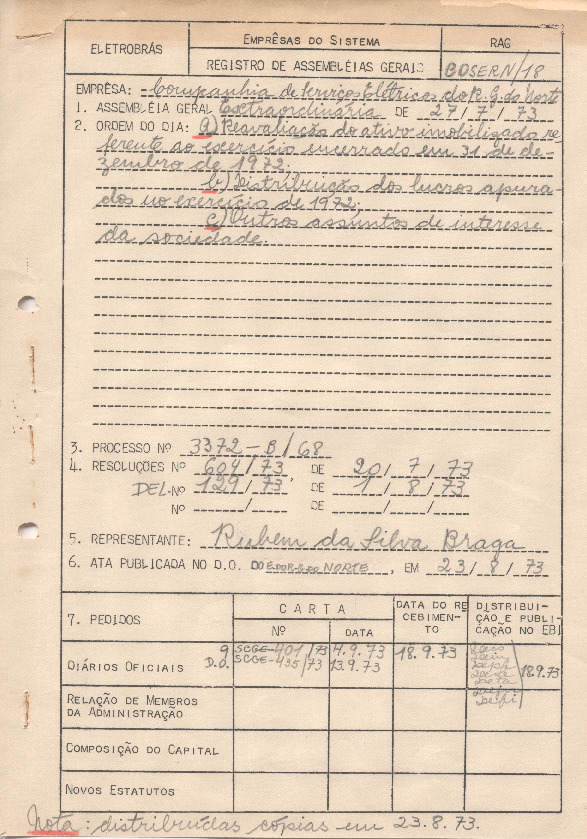 ELETROBRÁS
EMPRÊSAS DO SISTEMA
RAG
REGISTRO DE ASSEMBLÉIAS GERAIS
COSERN/18
EMPRÊSA: Companhia de Serviços Elétricos do R.G. do Norte
1. ASSEMBLÉIA GERAL Extraordinária DE 27/7/73
2. ORDEM DO DIA: a) Reavaliação do ativo imobilizado re-
ferente ao exercício encerrado em 31 de de-
zembro de 1972;
b) Distribuição dos lucros apura-
dos no exercício de 1972;
c) Outros assuntos de interesse
da sociedade.
3. PROCESSO Nº 3372-B/68
4. RESOLUÇÕES Nº 604/73, DE 20/7/73
DEL. Nº 129/73 DE 1/8/73
Nº / DE / /
5. REPRESENTANTE: Rubem da Silva Braga
6. ATA PUBLICADA NO D.O. DO E.DO R.G.DO NORTE, EM 23/8/73
7. PEDIDOS
CARTA
Nº
DATA
DATA DO RE
CEBIMEN-
TO
DISTRIBUI-
ÇÃO E PUBLI-
CAÇÃO NO EBI
DIÁRIOS OFICIAIS
9
D.O.
SCGE-401/73 4.9.73
SCGE-435/73 13.9.73
18.9.73
18.9.73
RELAÇÃO DE MEMBROS
DA ADMINISTRAÇÃO
COMPOSIÇÃO DO CAPITAL
NOVOS ESTATUTOS
Nota: distribuídas cópias em 23.8.73.